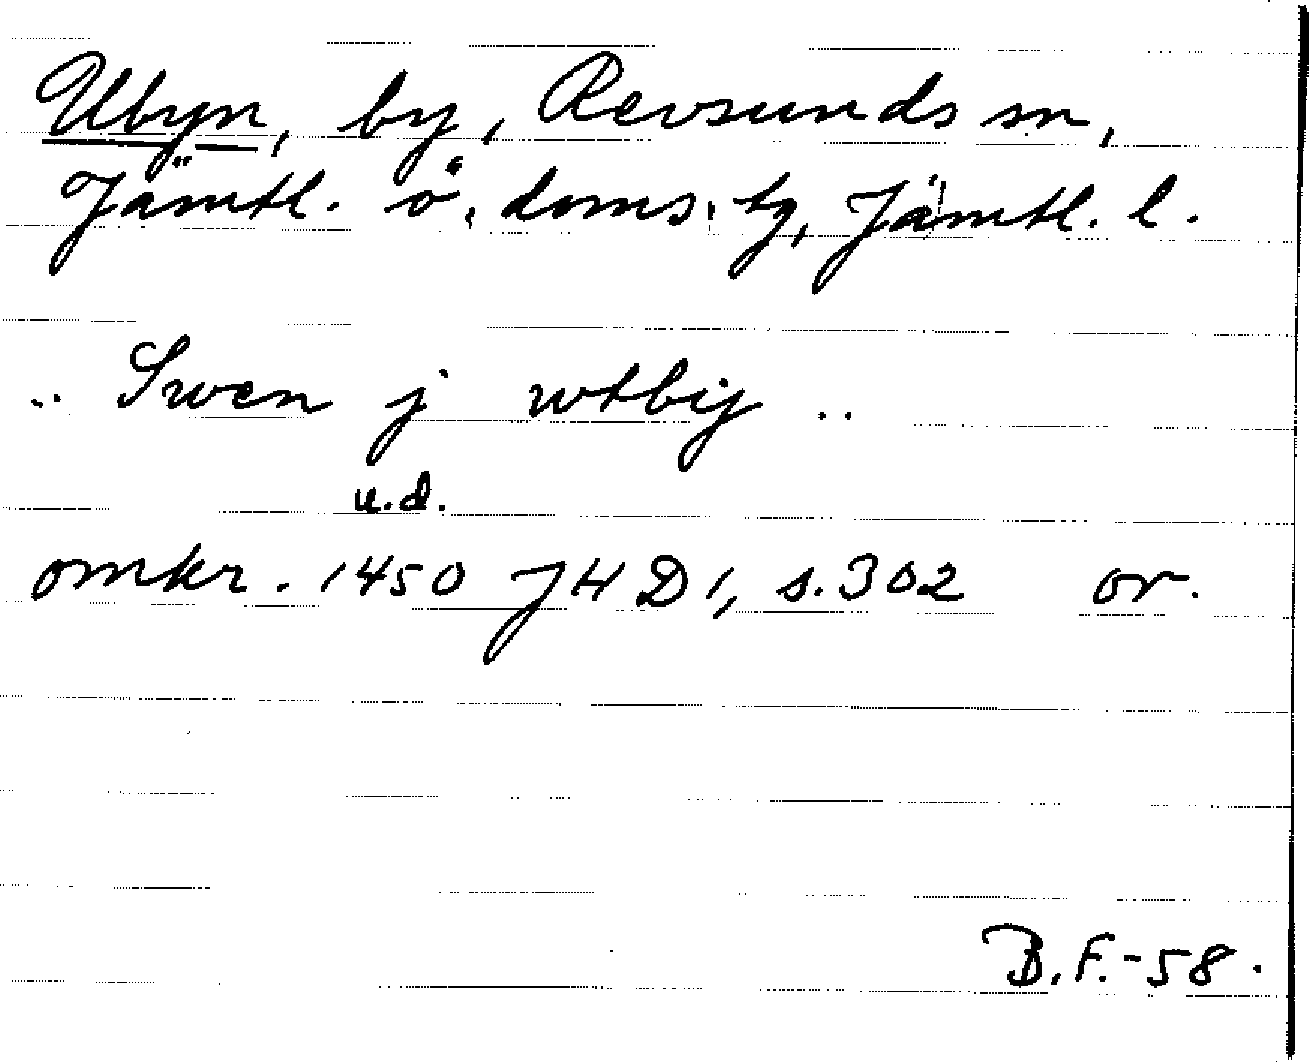 Ubyn, by, Revsunds sn,
Jämtl. ö. doms. tg, Jämtl. l.
.. Swen j wtbij ..
u.d.
omkr. 1450 JHD 1, s. 302 or.
B.F.-58.